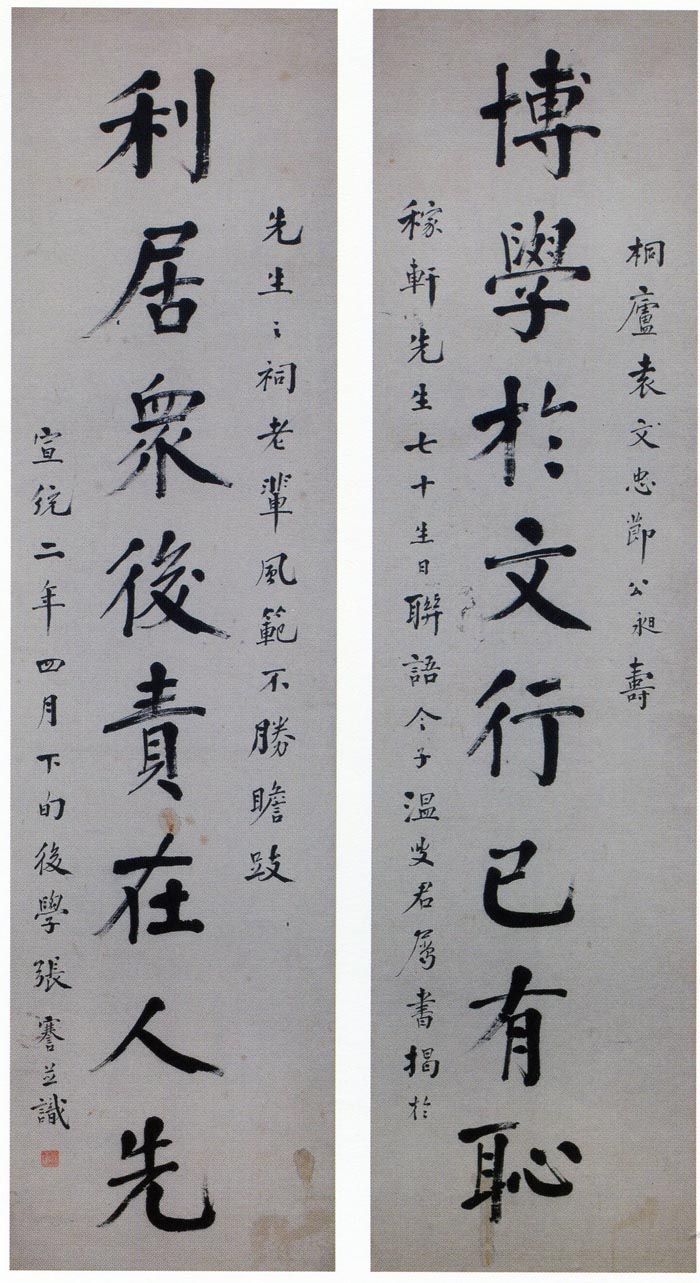 桐廬袁文忠節公昶壽
博學於文行己有恥
稼軒先生七十生日聯語令子溫叟君屬書揭於
先生〻祠老輩風範不勝瞻跂
利居眾後責在人先
宣統二年四月下旬後學張謇並識